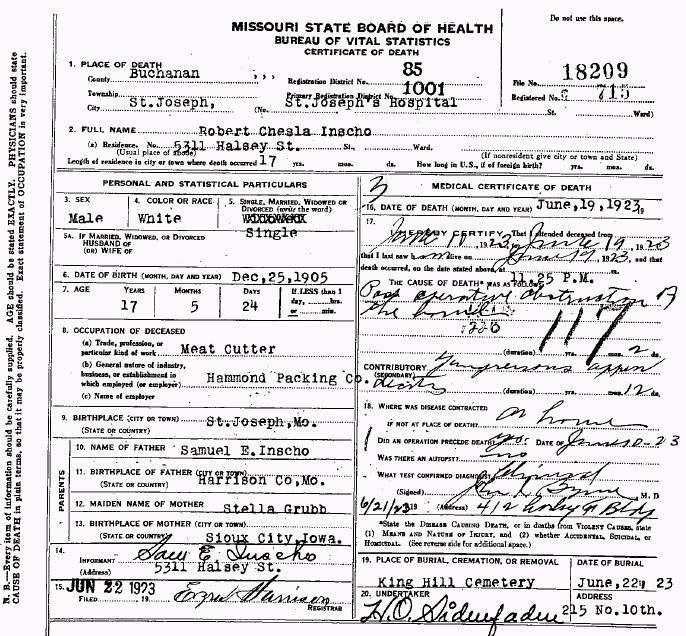 MISSOURI STATE BOARD OF HEALTH
BUREAU OF VITAL STATISTICS
CERTIFICATE OF DEATH
Do not use this space.
1. PLACE OF DEATH
County Buchanan
Registration District No. 85
File No. 18209
Township
Primary Registration District No. 1001
Registered No. 715
City St.Joseph, (No. St.Joseph's Hospital St. Ward)
2. FULL NAME Robert Chesla Inscho
(a) Residence. No. 5311 Halsey St. St., Ward.
(Usual place of abode) (If nonresident give city or town and State)
Length of residence in city or town where death occurred 17 yrs. mos. ds. How long in U.S., if of foreign birth? yrs. mos. ds.
PERSONAL AND STATISTICAL PARTICULARS
3. SEX
Male
4. COLOR OR RACE
White
5. SINGLE, MARRIED, WIDOWED OR
DIVORCED (write the word)
Single
5A. IF MARRIED, WIDOWED, OR DIVORCED
HUSBAND OF
(OR) WIFE OF
6. DATE OF BIRTH (MONTH, DAY AND YEAR) Dec,25,1905
7. AGE YEARS MONTHS DAYS If LESS than 1
day, hrs.
or min.
17 5 24
8. OCCUPATION OF DECEASED
(a) Trade, profession, or
particular kind of work Meat Cutter
(b) General nature of industry,
business, or establishment in
which employed (or employer) Hammond Packing Co.
(c) Name of employer
9. BIRTHPLACE (CITY OR TOWN) St.Joseph,Mo.
(STATE OR COUNTRY)
PARENTS
10. NAME OF FATHER Samuel E.Inscho
11. BIRTHPLACE OF FATHER (CITY OR TOWN)
(STATE OR COUNTRY) Harrison Co,Mo.
12. MAIDEN NAME OF MOTHER Stella Grubb
13. BIRTHPLACE OF MOTHER (CITY OR TOWN)
(STATE OR COUNTRY) Sioux City,Iowa.
14.
INFORMANT Sam E Inscho
(Address) 5311 Halsey St.
15. JUN 22 1923
FILED 19 REGISTRAR
3
MEDICAL CERTIFICATE OF DEATH
16. DATE OF DEATH (MONTH, DAY AND YEAR) June,19,1923 19
17.
I HEREBY CERTIFY, That I attended deceased from
June 19, 1923
that I last saw him alive on June 19, 1923, and that
death occurred, on the date stated above, at 11.25 P.M.
THE CAUSE OF DEATH* WAS AS FOLLOWS:
Post operative obstruction of
the bowel
117
(duration) yrs. mos. 2 ds.
CONTRIBUTORY Gangrenous appen
(SECONDARY) dicitis
(duration) yrs. mos. 12 ds.
18. WHERE WAS DISEASE CONTRACTED
IF NOT AT PLACE OF DEATH? at home
DID AN OPERATION PRECEDE DEATH? yes. DATE OF June 10-23
WAS THERE AN AUTOPSY? no
WHAT TEST CONFIRMED DIAGNOSIS? Clinical
(Signed) M. D
6/21/23 19 (Address) 412 Bldg
*State the DISEASE CAUSING DEATH, or in deaths from VIOLENT CAUSES, state
(1) MEANS AND NATURE OF INJURY, and (2) whether ACCIDENTAL, SUICIDAL, or
HOMICIDAL. (See reverse side for additional space.)
19. PLACE OF BURIAL, CREMATION, OR REMOVAL DATE OF BURIAL
King Hill Cemetery June,22 19 23
20. UNDERTAKER ADDRESS
H.O. Sidenfaden 215 No.10th.
N. B.—Every item of information should be carefully supplied. AGE should be stated EXACTLY. PHYSICIANS should state
CAUSE OF DEATH in plain terms, so that it may be properly classified. Exact statement of OCCUPATION is very important.